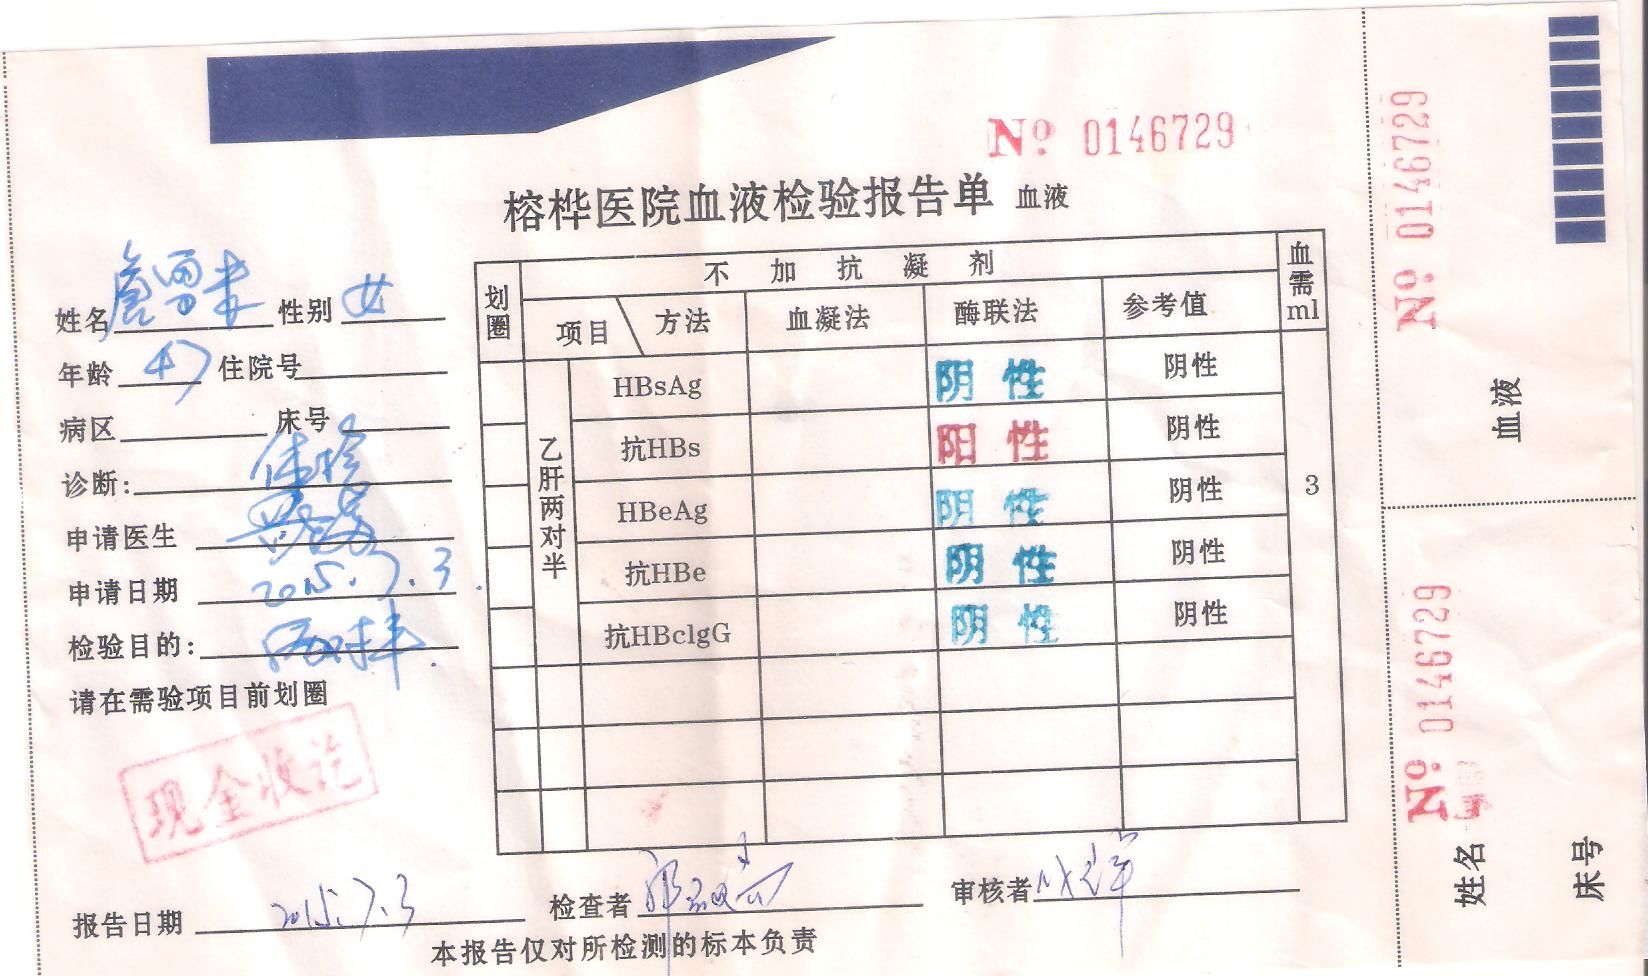 № 0146729
榕桦医院血液检验报告单 血液
姓名 性别 女
年龄 47 住院号
病区 床号
诊断: 体检
申请医生
申请日期 2015.7.3.
检验目的: 两对半.
请在需验项目前划圈
现金收讫
划圈 不加抗凝剂 血需ml
项目 方法 血凝法 酶联法 参考值
乙肝两对半
HBsAg 阴性 阴性
抗HBs 阳性 阴性
HBeAg 阴性 阴性
抗HBe 阴性 阴性
抗HBclgG 阴性 阴性
3
报告日期 2015.7.3 检查者 审核者
本报告仅对所检测的标本负责
№ 0146729
血液
№ 0146729
姓名
床号